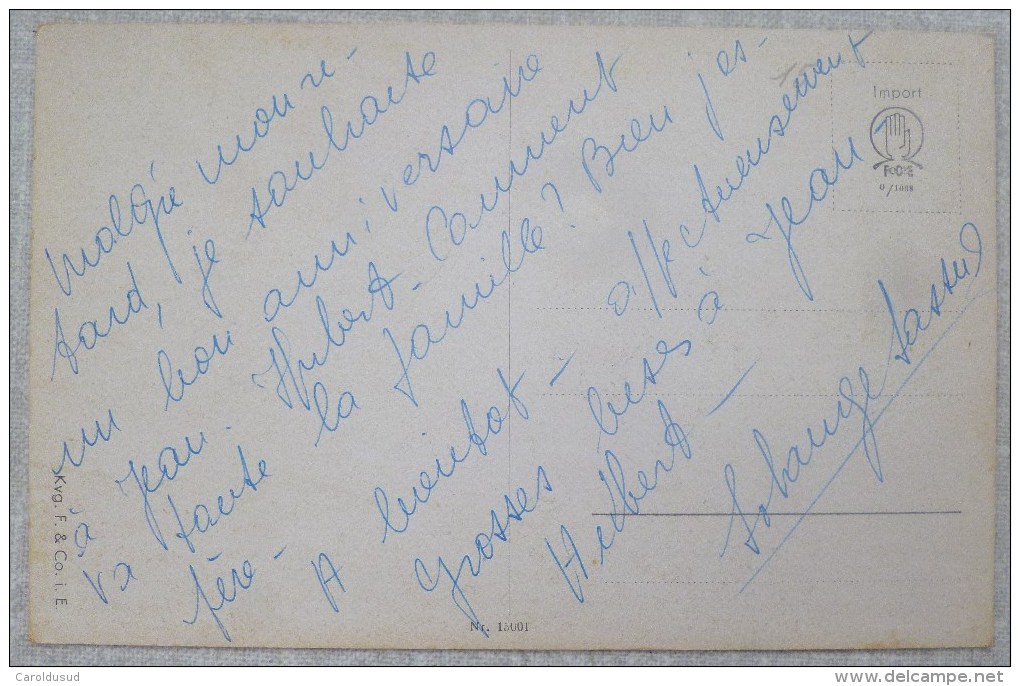 Malgré mon re-
tard, je souhaite
un bon anniversaire
à Jean-
Hubert. Comment
va toute la famille? Bien j'es-
père - A bientot - affectueusement
Grosses bises à Jean-
Hubert -
Solange
Import
FCDE
0/1088
Kvg. F. & Co. i. E.
Nr. 15001
Caroldusud
www.delcampe.net